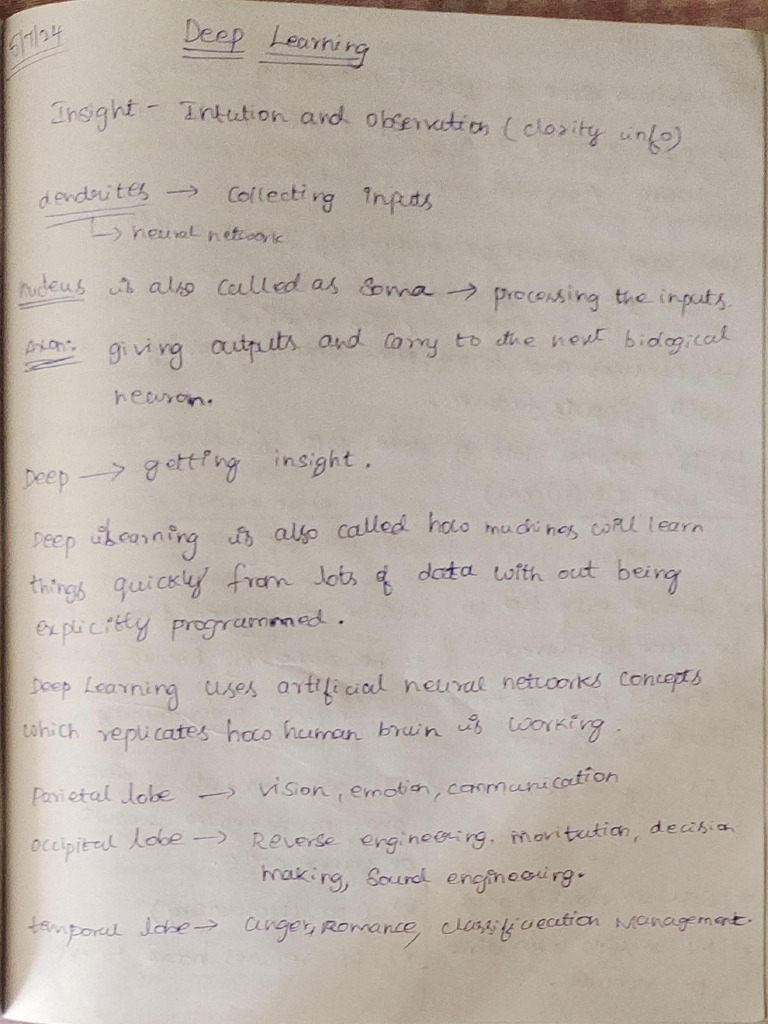 5/7/24
Deep Learning
Insight - Intution and observation (clarity info)
dendrites → Collecting inputs
↳ neural network
nucleus is also called as Soma → processing the inputs.
Axon: giving outputs and carry to the next biological
neuron.
Deep → getting insight.
Deep learning is also called how machines will learn
things quickly from lots of data with out being
explicitly programmed.
Deep Learning uses artificial neural networks concepts
which replicates how human brain is working.
Parietal lobe → vision, emotion, communication
occipital lobe → Reverse engineering, decision
making, Sound engineering.
temporal lobe → anger, Romance, classification Management.